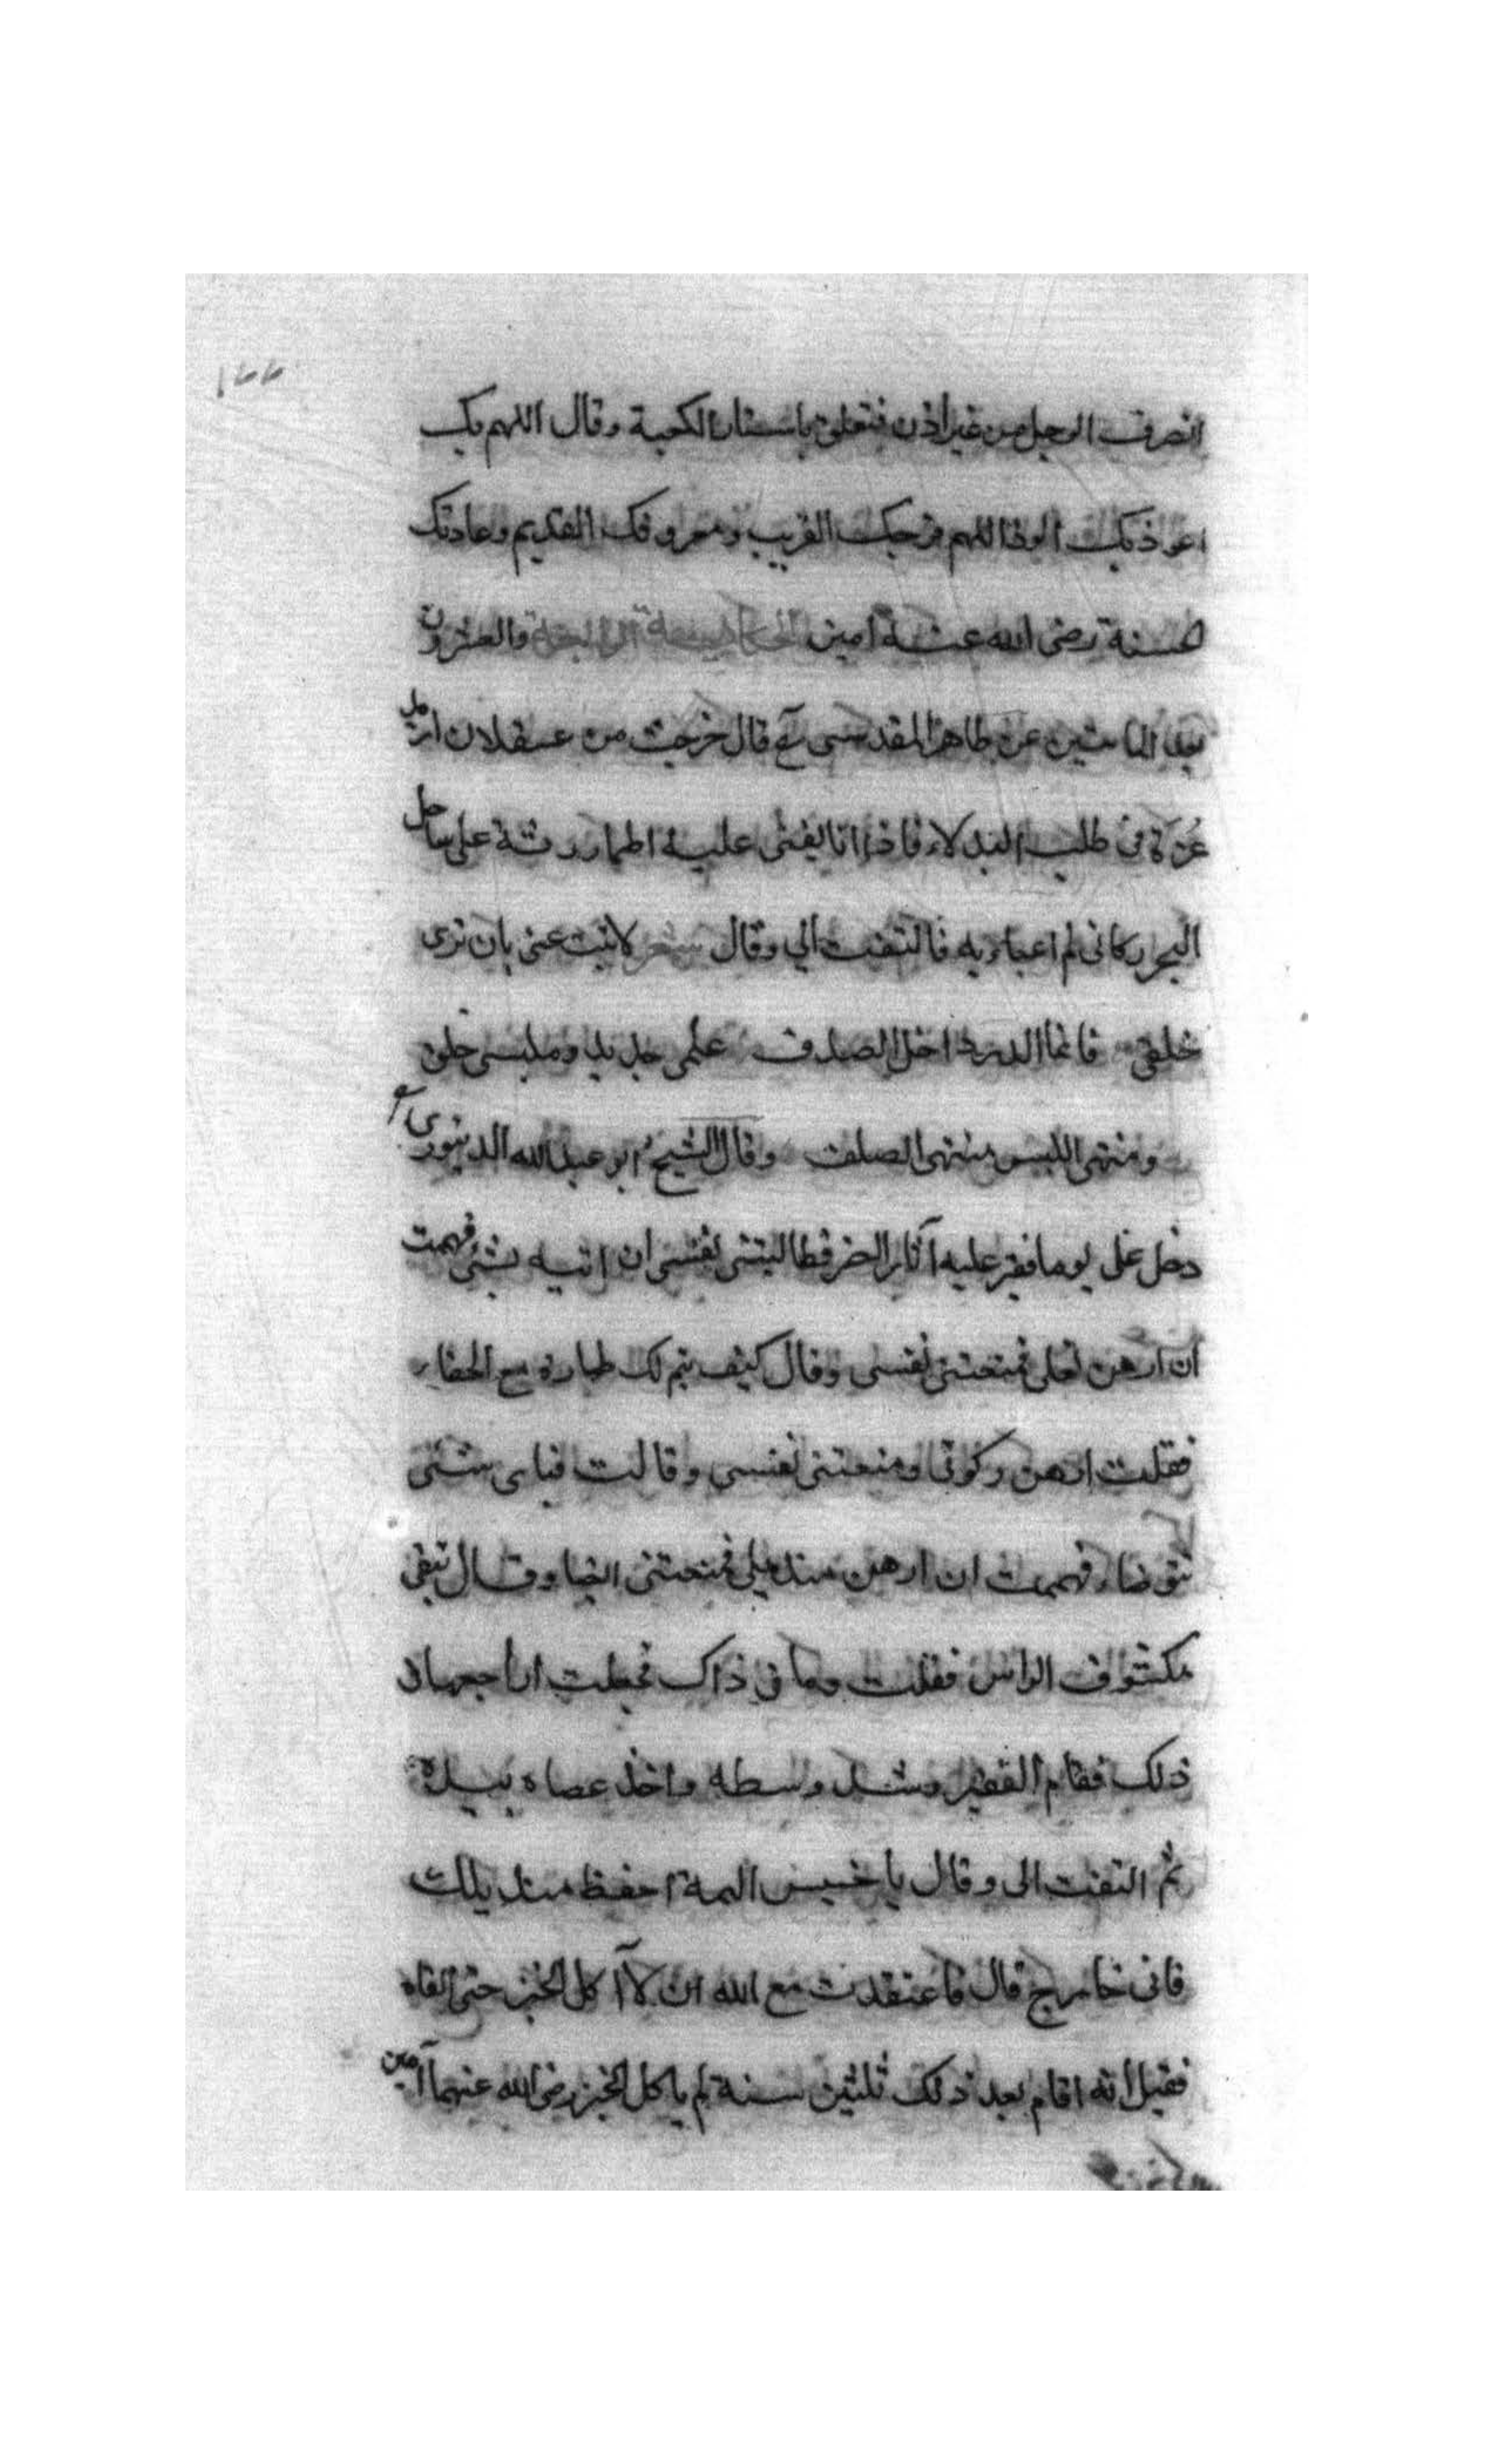 ١٦٦
انصرف الرجل من غير اذن فتعلق باستار الكعبة وقال اللهم بك
اعوذ بك الوفا اللهم فرجك القريب ومعروفك القديم وعادتك
الحسنة رضى الله عنه آمين الحكاية الرابعة والعشرون
بعد المائتين عن طاهر المقدسى قال خرجت من عسقلان اريد
غزة فى طلب البدلاء فاذا انا بفتى عليه اطمار رثة على ساحل
البحر وكانى لم اعباء به فالتفت الي وقال شعر لا تنب عنى بان ترى
خلقى فانما الدر داخل الصدف علمى جديد وملبسى خلق
ومنتهى اللبس منتهى الصلف وقال الشيخ ابو عبد الله الدينورى
دخل على يوما فقير عليه آثار الضر فطالبتنى نفسى ان اتيه بشئ فهممت
ان ارهن نعلى فمنعتنى نفسى وقال كيف يتم لك طهارة مع الحفاء
فقلت ارهن ركوتى ومنعتنى نفسى وقالت فباى شئ
تتوضاء فهممت ان ارهن منديلى فمنعتنى ايضا وقال تبقى
مكشوف الراس فقلت وما فى ذاك فجعلت اراجعها فى
ذلك فقام الفقير وشد وسطه واخذ عصاه بيده
ثم التفت الى وقال يا خسيس الهمة احفظ منديلك
فانى خارج قال فاعتقدت مع الله ان لا آكل الخبز حتى القاه
فقيل انه اقام بعد ذلك ثلثين سنة لم ياكل الخبز رضى الله عنهما آمين